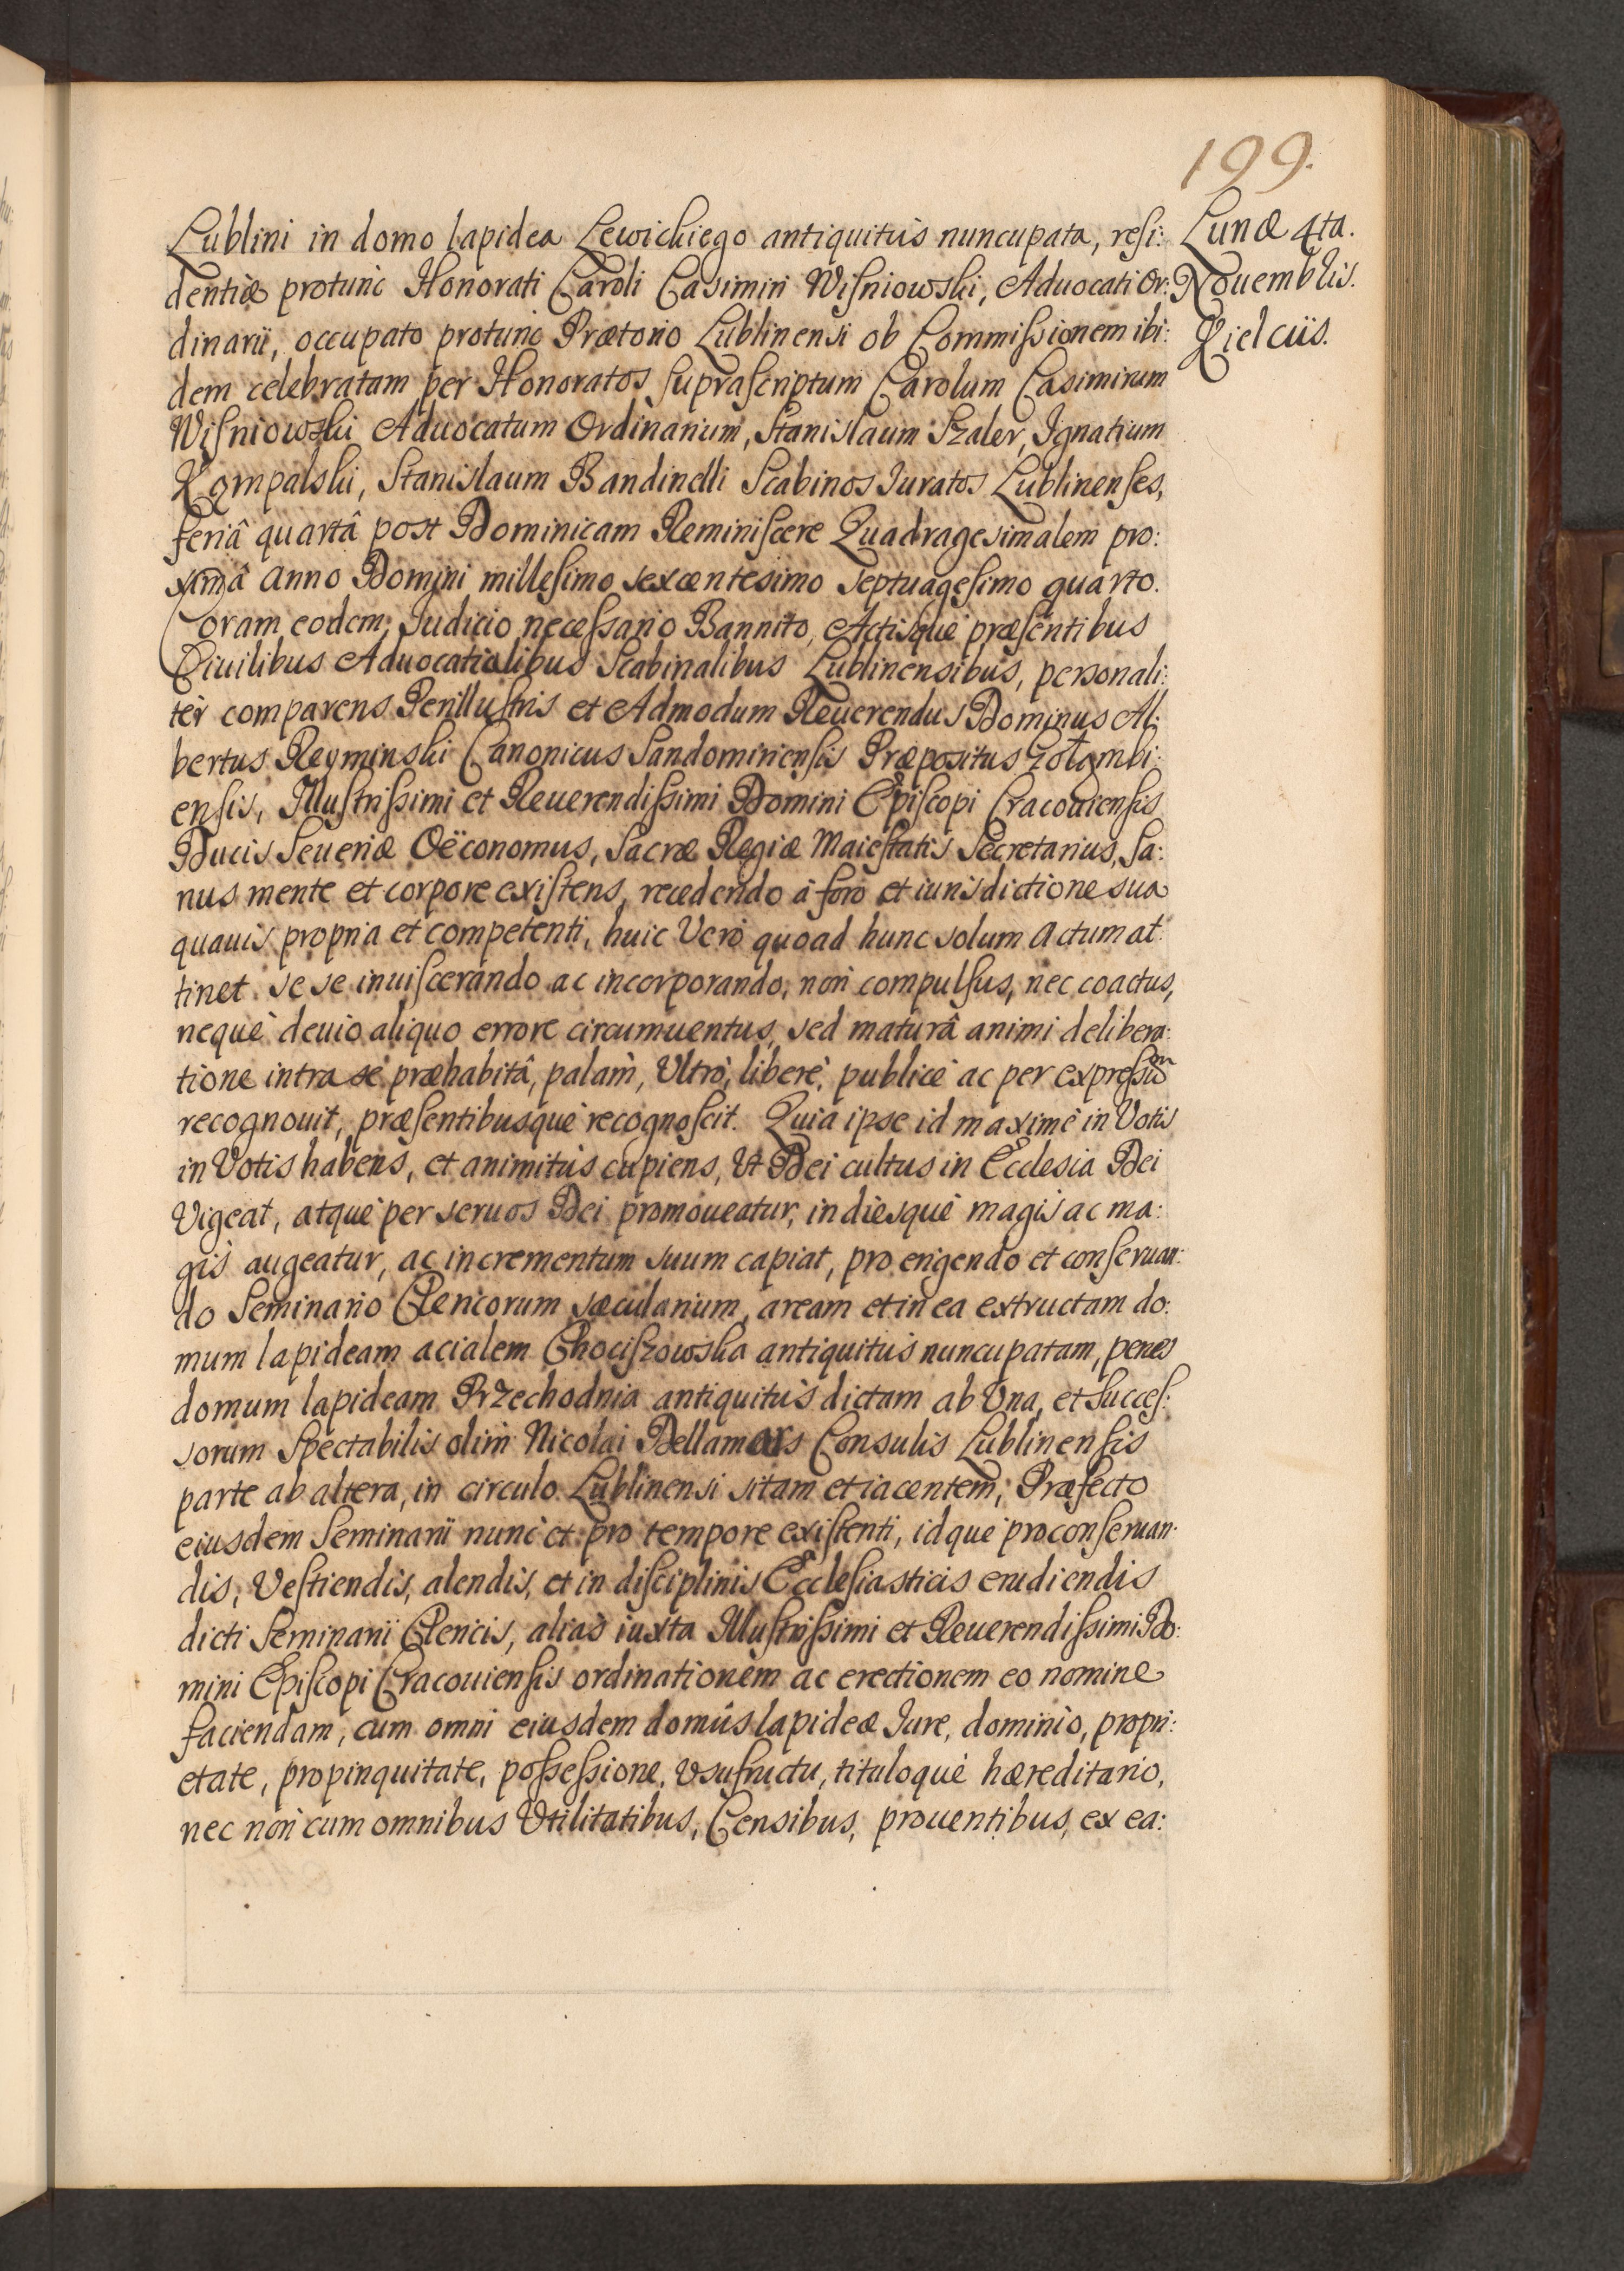 199.
Lublini in domo lapidea Lewickiego antiquitùs nuncupata, resi:
dentiæ protunc Honorati Caroli Casimiri Wisniowski, Aduocati Or:
dinarii, occupato protunc Prætorio Lublinensi ob Commissionem ibi:
dem celebratam, per Honoratos suprascriptum Carolum Casimirum
Wisniowski Aduocatum Ordinarium, Stanislaum Szaler, Ignatium
Kompalski, Stanislaum Bandinelli Scabinos Iuratos Lublinenses,
feriâ quartâ post Dominicam Reminiscere Quadragesimalem pro:
ximâ Anno Domini millesimo sexcentesimo septuagesimo quarto.
Coram eodem Iudicio necessario Bannito, Actisque præsentibus
Ciuilibus Aduocatialibus Scabinalibus Lublinensibus, personali:
tèr comparens Perillustris et Admodum Reuerendus Dominus Al:
bertus Reyminski Canonicus Sandomiriensis Præpositus Gołambi:
ensis, Illustrissimi et Reuerendissimi Domini Episcopi Cracouiensis
Ducis Seueriæ Oëconomus, Sacræ Regiæ Maiestatis Secretarius, Sa:
nus mente et corpore existens, recedendo à foro et iurisdictione sua
quauis propria et competenti, huic Verò quoad hunc solum Actum at:
tinet se se inuiscerando ac incorporando, non compulsus, nec coactus,
nequè deuio aliquo errore circumuentus, sed maturâ animi delibera:
tione intra se præhabitâ, palàm, Vltrò, liberè, publicè ac per expressũ
recognouit, præsentibusquè recognoscit. Quia ipse id maximè in Votis
in Votis habens, et animitùs cupiens, Vt Dei cultus in Ecclesia Dei
Vigeat, atquè per seruos Dei promoueatur, in diesquè magis ac ma:
gis augeatur, ac incrementum suum capiat, pro erigendo et conseruan:
do Seminario Clericorum sæcularium, aream et in ea extructam do:
mum lapideam acialem Chociszowska antiquitùs nuncupatam, penes
domum lapideam Przechodnia antiquitùs dictam ab Vna, et succes:
sorum Spectabilis olim Nicolai Dellamars Consulis Lublinensis
parte ab altera, in circulo Lublinensi sitam et iacentem, Præfecto
eiusdem Seminarii nunc et pro tempore existenti, idquè pro conseruan:
dis, Vestiendis, alendis, et in disciplinis Ecclesiasticis erudiendis
dicti Seminarii Clericis, aliàs iuxta Illustrissimi et Reuerendissimi Do:
mini Episcopi Cracouiensis ordinationem ac erectionem eo nomine
faciendam, cum omni eiusdem domûs lapideæ Iure, dominio, propri:
etate, propinquitate, possessione, Vsufructu, tituloquè hæreditario,
nec non cum omnibus Vtilitatibus, Censibus, prouentibus, ex ea:
Lunæ 4ta.
Nouembris.
Kielciis.